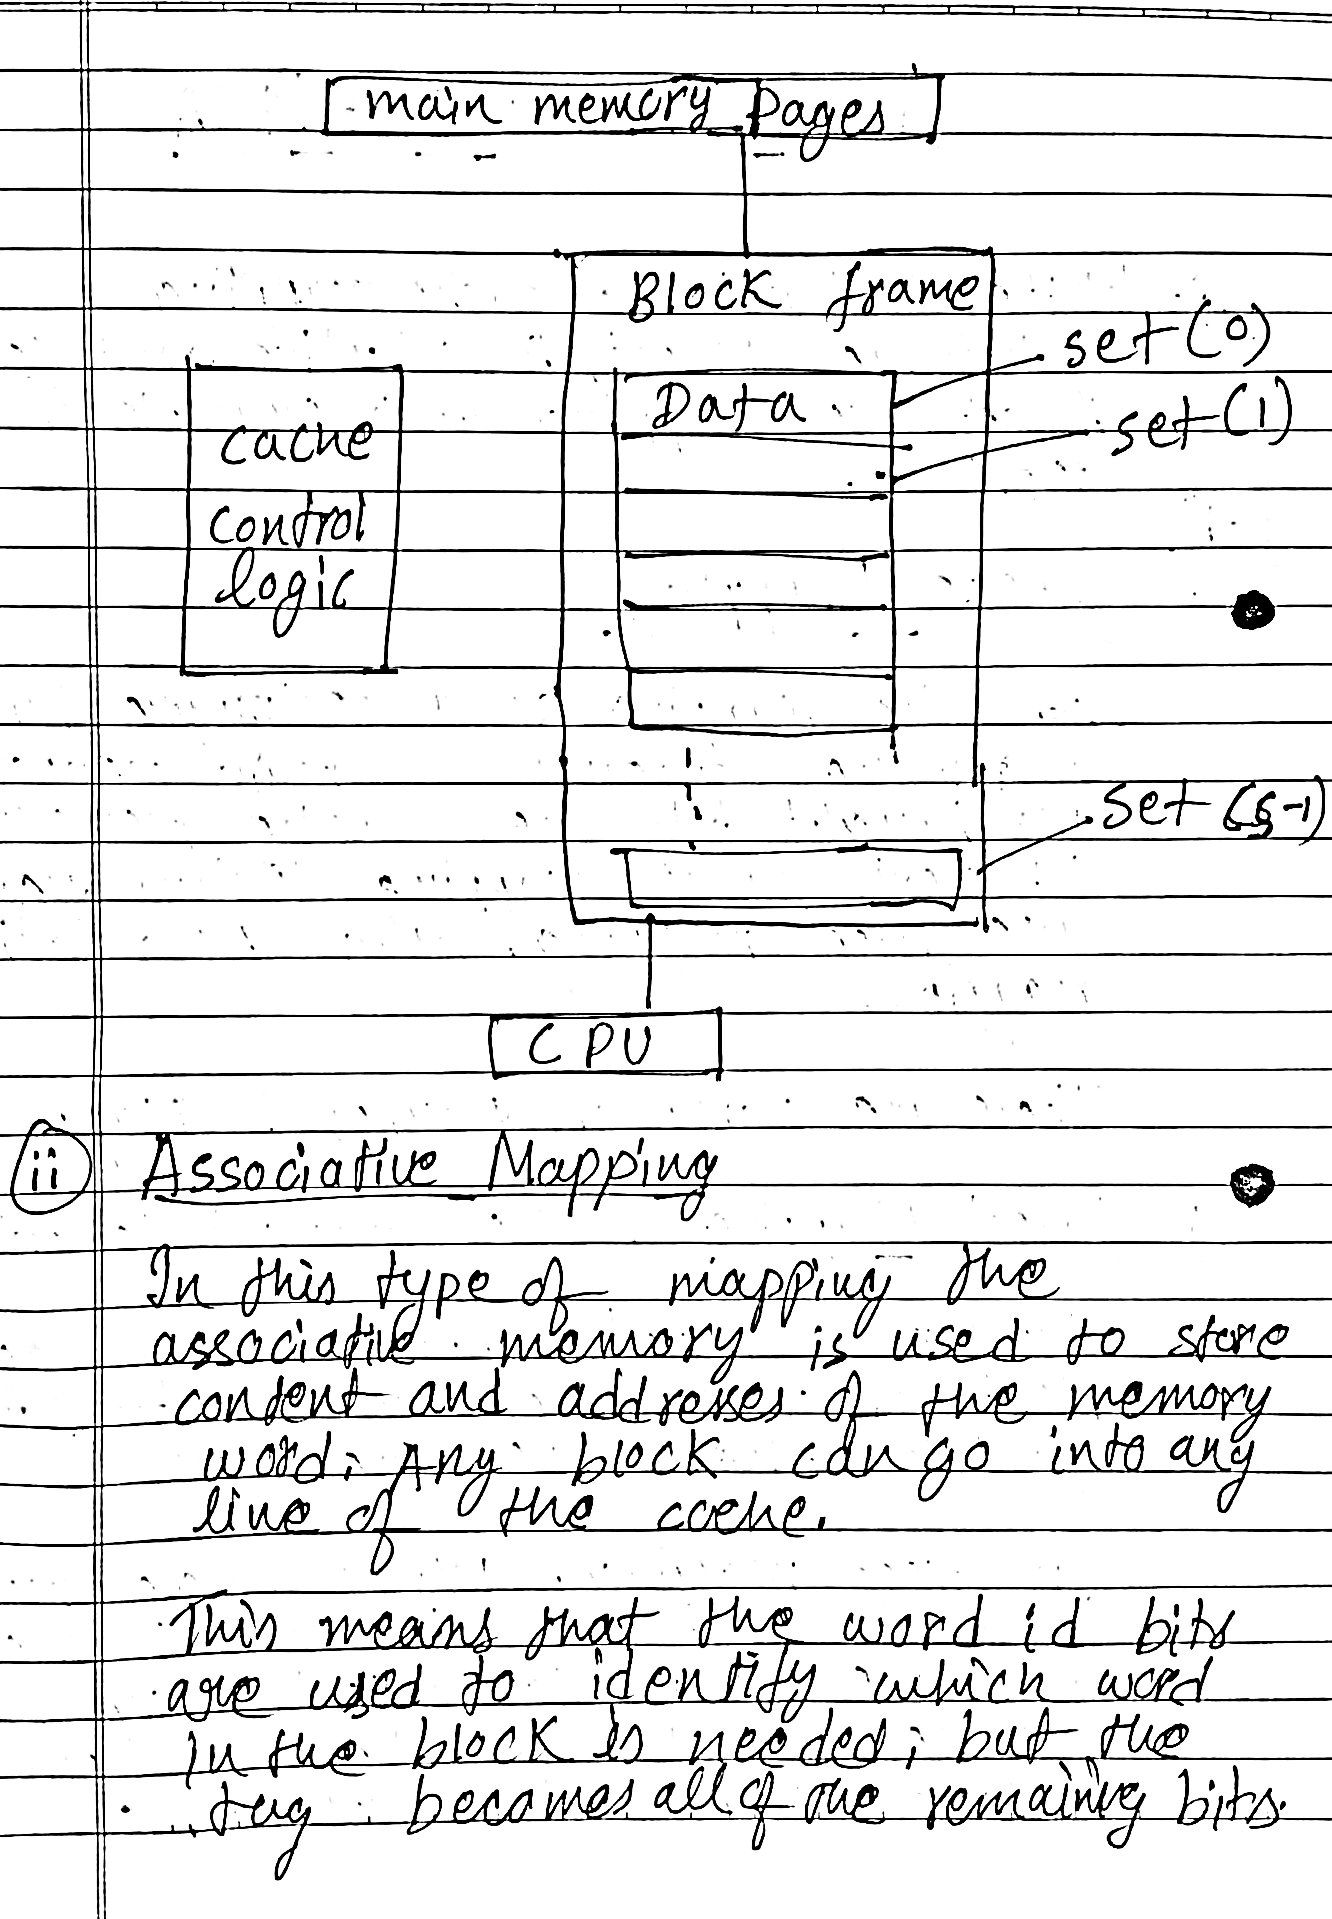 main memory Pages
Block frame
set (0)
Data
set (1)
cache
control
logic
set (s-1)
CPU
ii Associative Mapping
In this type of mapping the
associative memory is used to store
content and addresses of the memory
word; Any block can go into any
line of the cache.
This means that the word id bits
are used to identify which word
in the block is needed; but the
tag becomes all of the remaining bits.